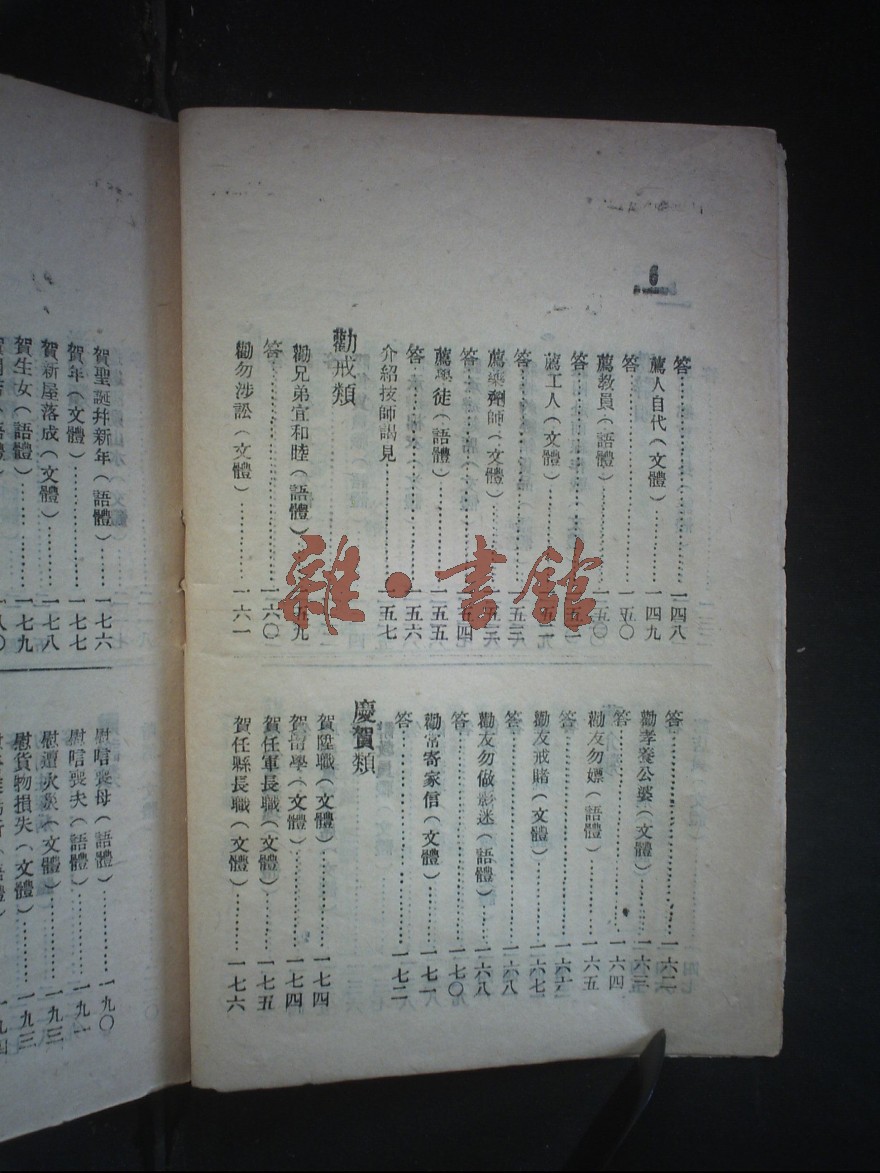 6
答……一四八
薦人自代（文體）……一四九
答……一五〇
薦教員（語體）……一五〇
答
薦工人（文體）
答
薦藥劑師（文體）
答……一五四
薦學徒（語體）……一五五
答……一五六
介紹技師謁見……一五七
勸戒類
勸兄弟宜和睦（語體）……一五九
答……一六〇
勸勿涉訟（文體）……一六一
答……一六二
勸孝養公婆（文體）……一六三
答……一六四
勸友勿嫖（語體）……一六五
答……一六六
勸友戒賭（文體）……一六七
答……一六八
勸友勿做影迷（語體）……一六八
答……一七〇
勸常寄家信（文體）……一七一
答……一七二
慶賀類
賀陞職（文體）……一七四
賀留學（文體）……一七四
賀任軍長職（文體）……一七五
賀任縣長職（文體）……一七六
賀聖誕幷新年（語體）……一七六
賀年（文體）……一七七
賀新屋落成（文體）……一七八
賀生女（語體）……一七九
一八〇
慰唁喪母（語體）……一九〇
慰唁喪夫（語體）……一九一
慰遭火災（文體）……一九三
慰貨物損失（文體）……一九三
一九四
雜·書館